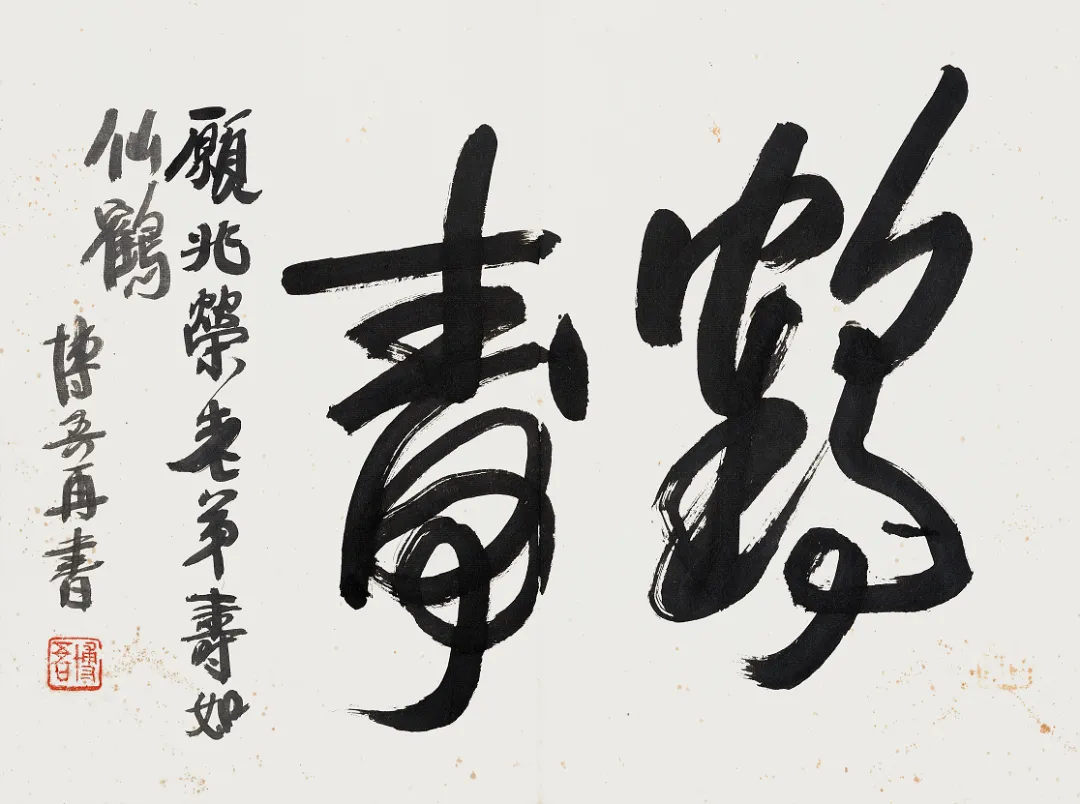 鶴壽
願兆榮老弟壽如
仙鶴
博吾再書
博吾